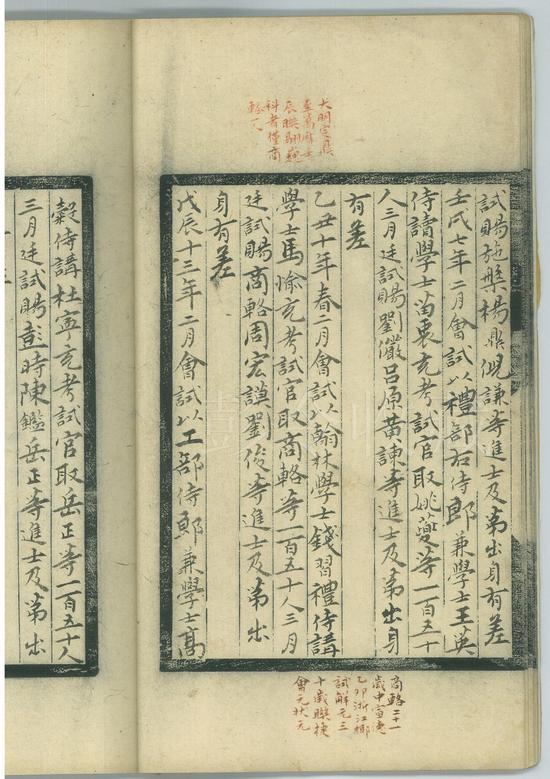 大明定鼎
辰聯翩魏
科者僅商
輅一人
試賜施槃楊鼎倪謙等進士及第出身有差
壬戌七年二月會試以禮部右侍郎兼學士王英
侍讀學士苗衷充考試官取姚夔等一百五十
人三月廷試賜劉儼呂原黃諫等進士及第出身
有差
乙丑十年春二月會試以翰林學士錢習禮侍講
學士馬愉充考試官取商輅等一百五十人三月
廷試賜商輅周宏謨劉俊等進士及第出
身有差
戊辰十三年二月會試以工部侍郎兼學士高
商輅二十一
歲中宣德
乙卯浙江鄉
試解元三
十歲聯捷
會元狀元
穀侍講杜寧充考試官取岳正等一百五十人
三月廷試賜彭時陳鑑岳正等進士及第出